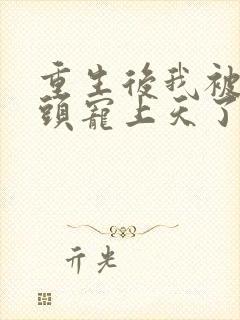 重生後我被
頭寵上天了
亓光